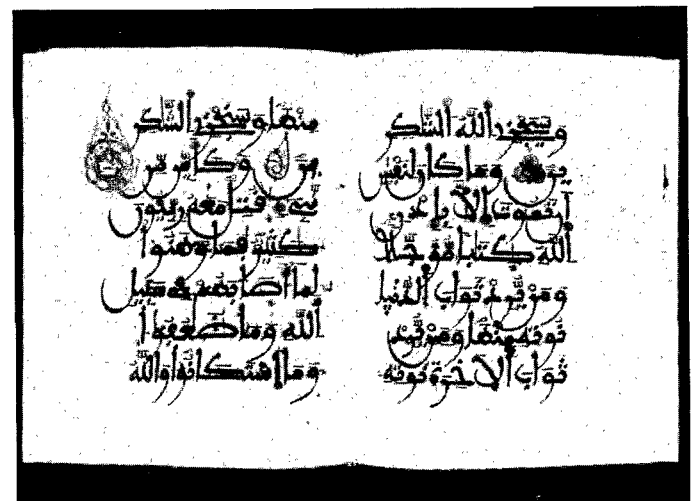 وسيجزي الله الشكر
ين وما كان لنفس
أن تموت إلا بإذن
الله كتبا مؤجلا
ومن يرد ثواب الدنيا
نؤته منها ومن يرد
ثواب الآخرة نؤته
منها وسنجزي الشكر
ين وكأين من
نبيء قتل معه ربيون
كثير فما وهنوا
لما أصابهم في سبيل
الله وما ضعفوا
وما استكانوا والله